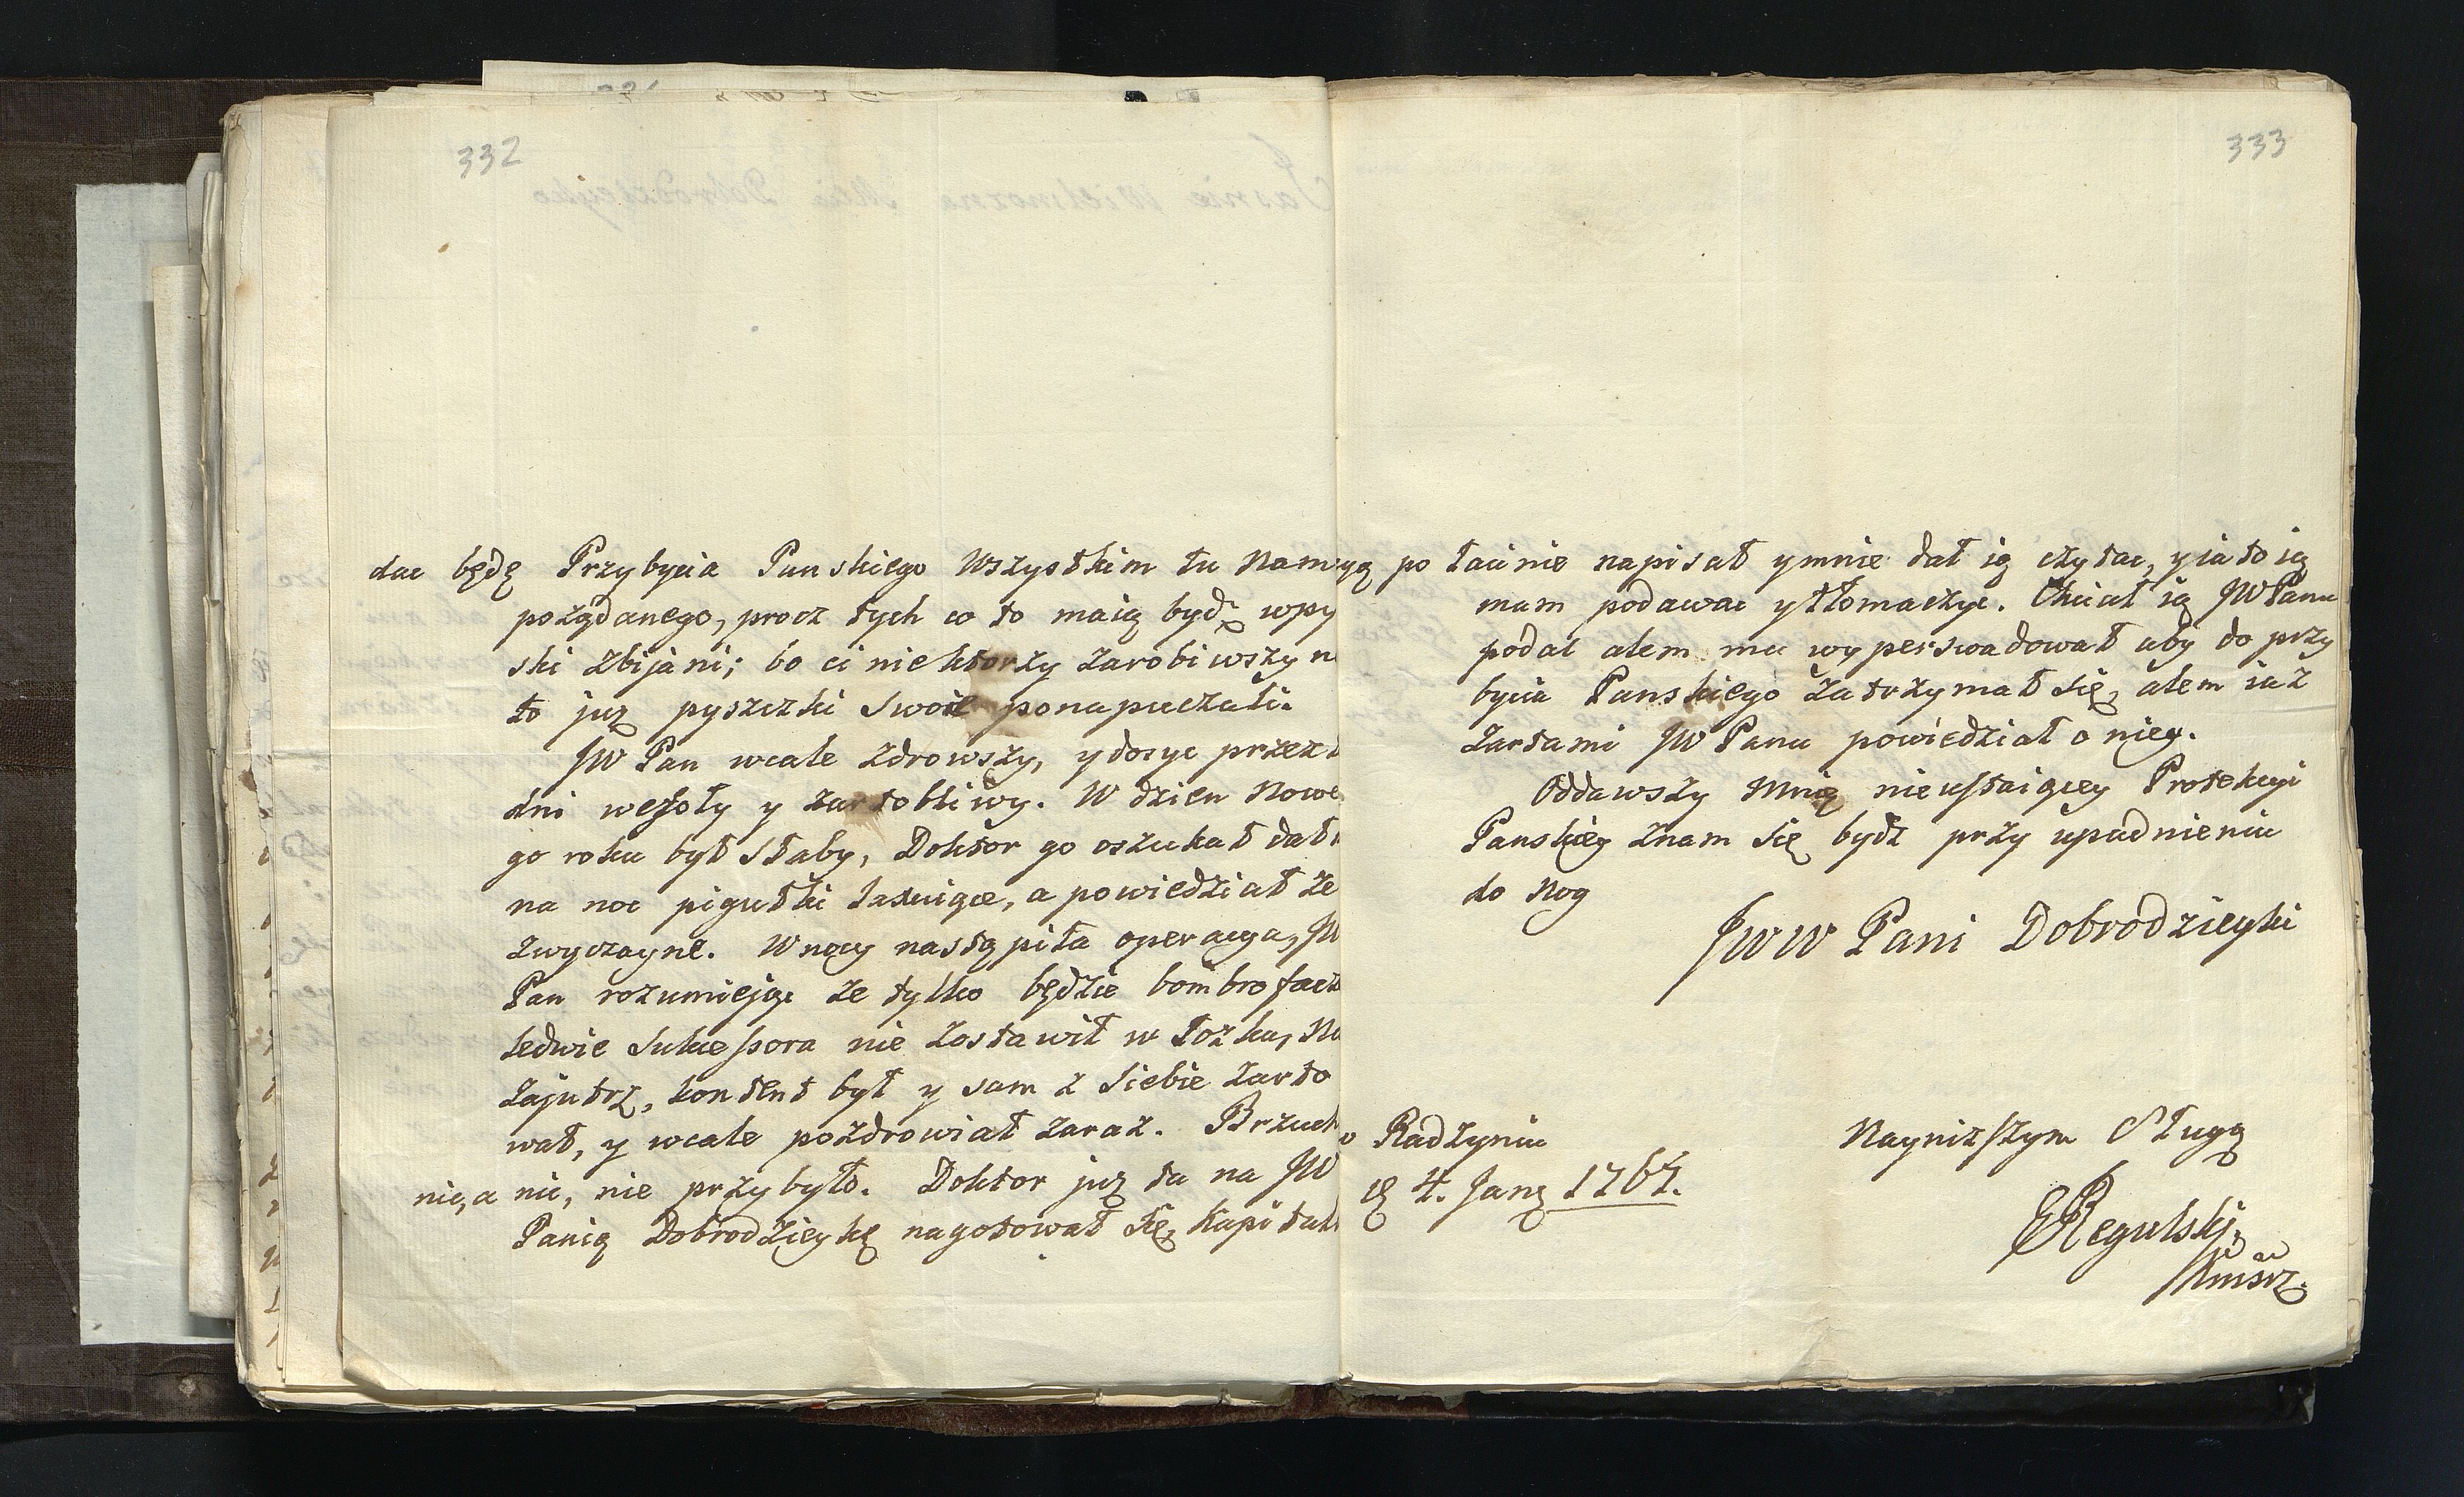 332
dac będę Przybycia Panskiego Wszystkim tu Nam
pożądanego, procz tych co to maią bydz wpy
ski zbijani; bo ci niektorzy zarobiwszy n
to juz pyszczki swoie ponapuczali.
JW Pan wcale zdrowszy, y dosyc przez
dni wesoły y żartobliwy. W dzien Nowe
go roku był słaby, Doktor go oszukał dał
na noc pigułki laxuiące, a powiedział że
zwyczayne. W nocy nastąpiła operacya, JW
Pan rozumiejąc że tylko będzie bombro
ledwie Sukcessora nie zostawił w łożku, Na
zajutrz, kontent był y sam z siebie żarto
wał, y wcale pozdrowiał zaraz. Brzuch
nic, a nic, nie przybyło. Doktor juz ta na JW
Panią Dobrodzieykę nagotował się,
333
po łacinie napisał y mnie dał ią czytac, y ia to ią
mam podawac y tłomaczyc. Chciał ią JW Panu
podac alem mu wyperswadował aby do przy
bycia Panskiego zatrzymał się, alem iaz
żartami JW Panu powiedział o niey.
Oddawszy Mnię nieustaiącey Protekcyi
Panskiey znam się bydz przy upadnieniu
do Nog
JWW Pani Dobrodzieyki
Radzyniu
4. Jan 1767.
Nayniższym Sługą
Regulski